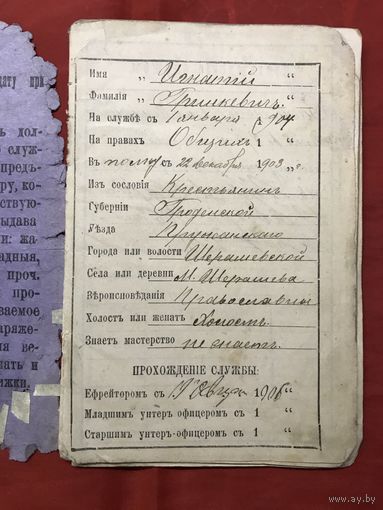 дату при
ъ дол-
ъ служ-
предъ-
ру, ко-
ствую-
выдава
и: жа-
адныя,
проч.
про-
ваемое
аряже-
ія ве-
нать и
ижки.
Имя „ Игнатій “
Фамилія „ Гринкевичъ “
На службѣ съ 1 января 1904
На правахъ Общихъ 1 “
Въ полку съ 22 декабря 1903 „г.
Изъ сословія Крестьянинъ
Губерніи Гродненской
Уѣзда Пружанскаго
Города или волости Шерешевской
Села или деревни М. Шерешева
Вѣроисповѣданія Православный
Холостъ или женатъ Холостъ
Знаетъ мастерство не знаетъ.
ПРОХОЖДЕНІЕ СЛУЖБЫ:
Ефрейторомъ съ 1906
Младшимъ унтеръ офицеромъ съ 1 “
Старшимъ унтеръ-офицеромъ съ 1 “
www.ay.by